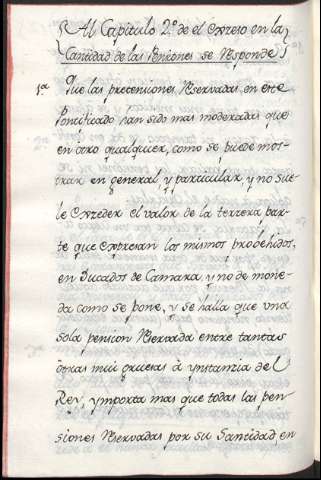 Al Capitulo 2º de el exceso en la
Cantidad de las Pensiones se Responde
1ª Que las pretensiones Reservadas en este
Pontificado san sido mas moderadas que
en otro qualquier, como se puede mos-
trar en general, y particular, y no sue-
le Exzeder el valor de la terzera par-
te que expresan los mismos probehidos,
en Ducados de Camara, y no de mone-
da como se pone, y se halla que vna
sola pension Reservada entre tantas
otras mui gruesas à ynstanzia de el
Rey, ymporta mas que todas las pen-
siones Reservadas por su Santidad en